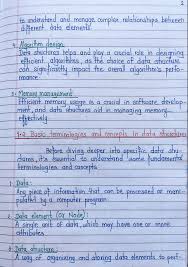 2
to understand and manage complex relationships between
different data elements.
Algorithm design
Data structures helps and play a crucial role in designing
efficient algorithms, as the choice of data structure
can significantly impact the overall algorithm's perfo-
rmance.
Memory management
Efficient memory usage is a crucial in software develop-
ment, and data structures aid in managing memory
effectively
1.2 Basic terminologies and concepts in data structures
Before diving deeper into specific data stru-
ctures, it's essential to understand some fundamental
terminologies and concepts.
1. Data:
Any piece of information that can be processed or mani-
pulated by a computer program.
2. Data element (or Node):
A single unit of data, which may have one or more
attributes.
3. Data structure:
A way of organizing and storing data elements to perf-